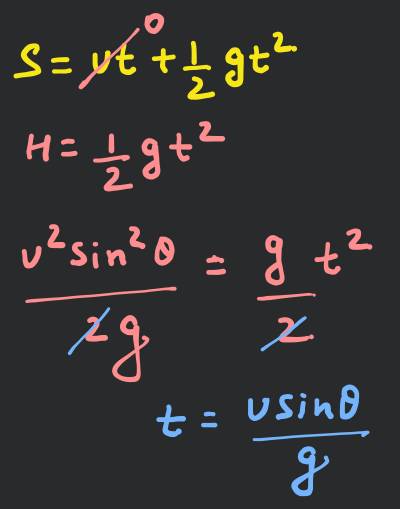 S = ut 0 + 1/2 gt²
H = 1/2 gt²
u² sin² θ / 2g = g/2 t²
t = u sin θ / g